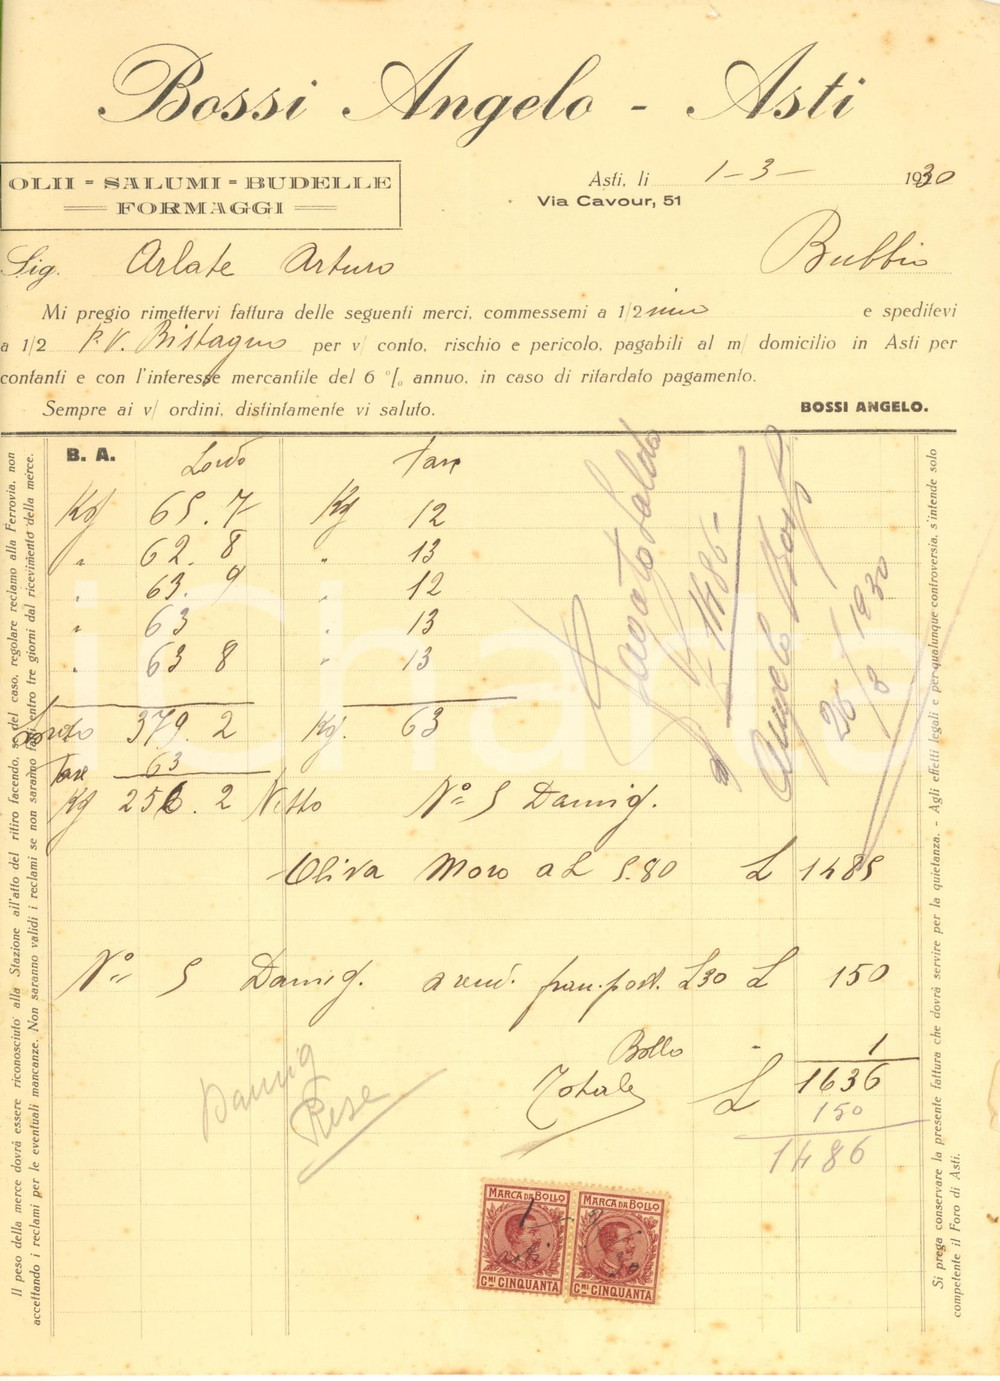 Bossi Angelo - Asti
OLII - SALUMI - BUDELLE
FORMAGGI
Asti, li 1-3- 1930
Via Cavour, 51
Sig. Arlate Arturo Bubbio
Mi pregio rimettervi fattura delle seguenti merci, commessemi a 1/2 e speditevi
a 1/2 P.V. Bistagno per v/ conto, rischio e pericolo, pagabili al m/ domicilio in Asti per
contanti e con l'interesse mercantile del 6 % annuo, in caso di ritardato pagamento.
Sempre ai v/ ordini, distintamente vi saluto.
BOSSI ANGELO.
B. A. Lordo Tare
Kg 65.7 Kg 12
" 62.8 " 13
" 63.9 " 12
" 63 " 13
" 63 8 " 13
Lordo 379.2 Kg. 63
Tare 63
Kg 256.2 Netto N° 5 Damig.
Oliva Moro a L 5.80 L 1485
N° 5 Damig. a rend. fran. port. L 30 L 150
Bollo - 1
Totale L 1636
150
1486
Damig
Rese
Pagato Saldo
L 1486-
Angelo Bossi
26/3 1930
MARCA DA BOLLO
CMI CINQUANTA
MARCA DA BOLLO
CMI CINQUANTA
1 - 3
30
Il peso della merce dovrà essere riconosciuto alla Stazione all'atto del ritiro facendo, se del caso, regolare reclamo alla Ferrovia, non
accettando i reclami per le eventuali mancanze. Non saranno validi i reclami se non saranno fatti entro tre giorni dal ricevimento della merce.
Si prega conservare la presente fattura che dovrà servire per la quietanza. - Agli effetti legali e per qualunque controversia, s'intende solo
competente il Foro di Asti.
iCharta